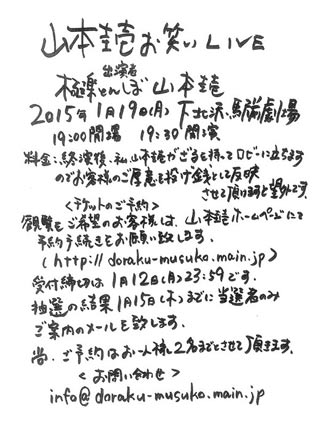 山本圭壱お笑いLIVE
出演者
極楽とんぼ 山本圭壱
2015年1月19日(月) 下北沢・駅前劇場
19:00開場 19:30開演
料金:終演後、私山本圭壱がざるを持ってロビーに立ちます
のでお客様のご厚意を投げ銭として反映
させて頂けますと幸いです。
<チケットのご予約>
観覧をご希望のお客様は、山本圭壱ホームページにて
予約手続きをお願い致します。
(http://doraku-musuko.main.jp)
受付締切は1月12日(月)23:59です。
抽選の結果1月15日(木)までに当選者のみ
ご案内のメールを致します。
尚、ご予約はお一人様2名までとさせて頂きます。
<お問い合わせ>
info@doraku-musuko.main.jp